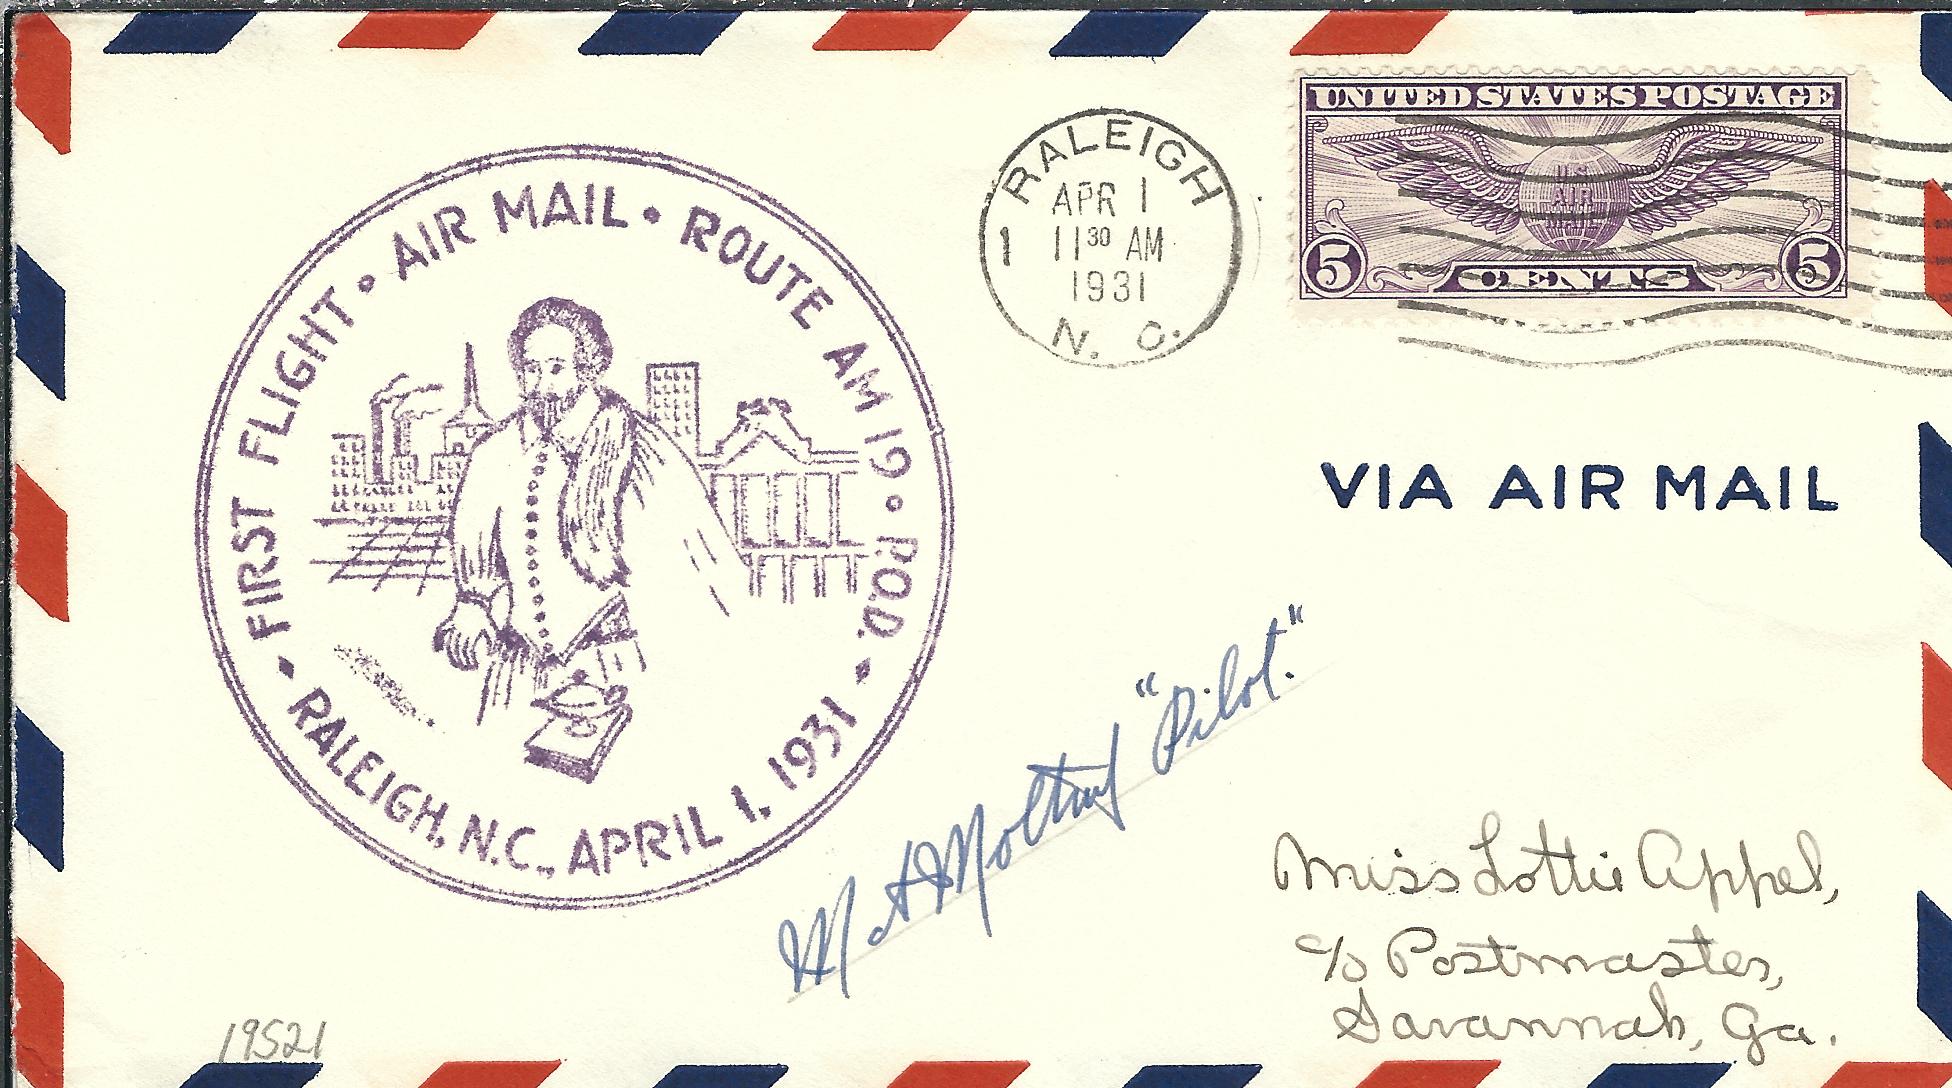 FIRST FLIGHT • AIR MAIL • ROUTE AM 19 • P.O.D.
• RALEIGH, N.C., APRIL 1, 1931 •
RALEIGH
APR 1
1 11 30 AM
1931
N. C.
UNITED STATES POSTAGE
U.S.
AIR
MAIL
5 CENTS 5
VIA AIR MAIL
"Pilot."
Miss Lottie Appel,
c/o Postmaster,
Savannah, Ga.
19521